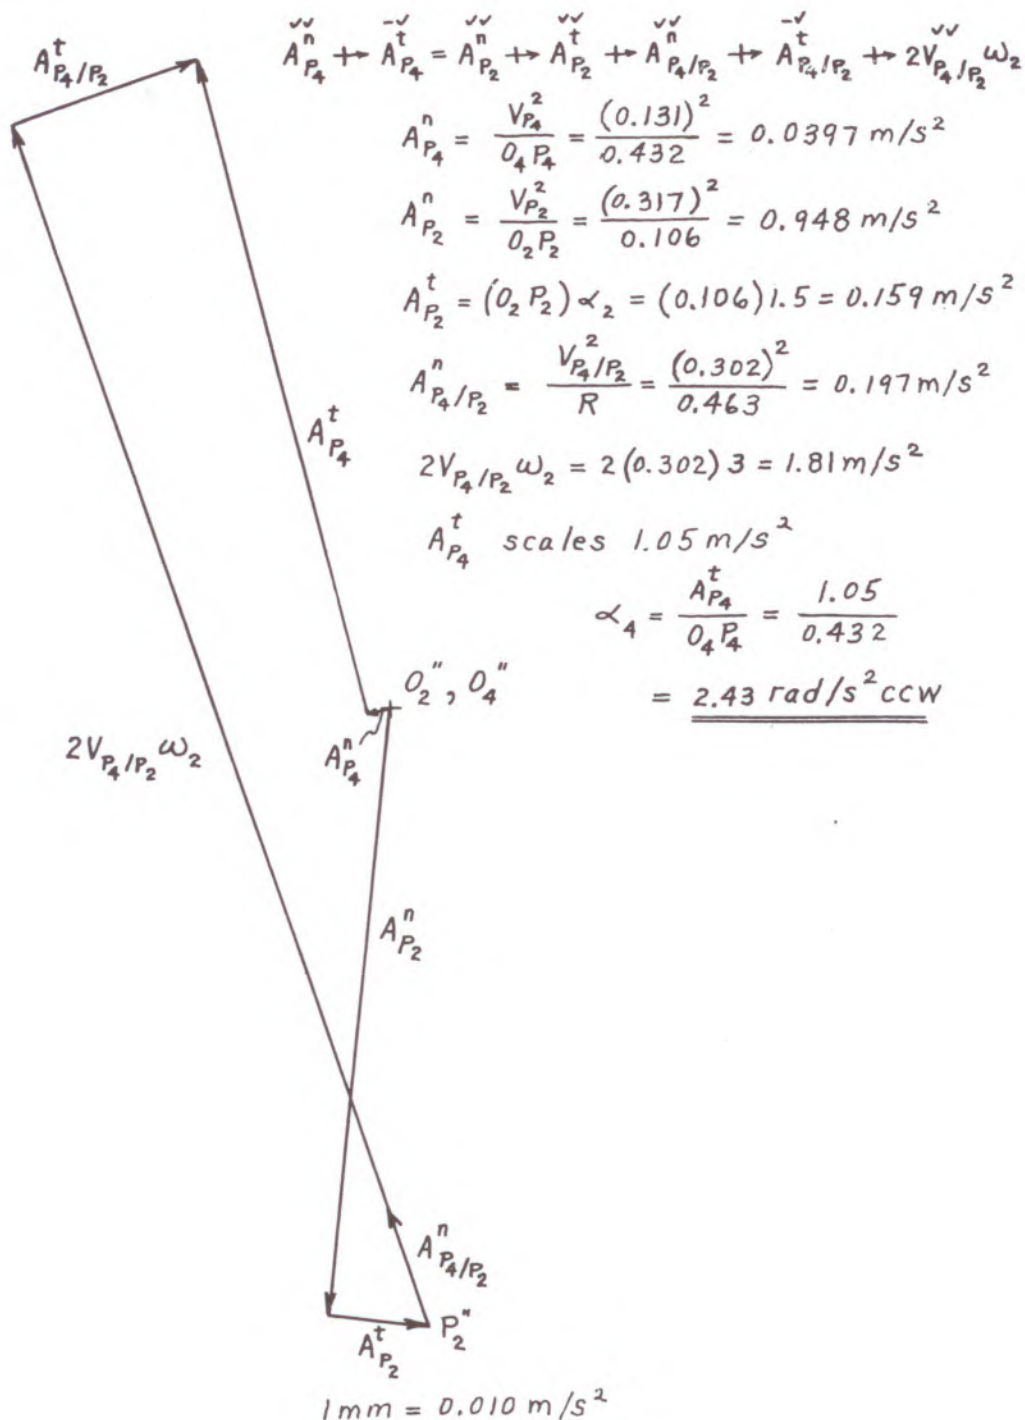 A^t_{P_4/P_2}
A^n_{P_4} +→ A^t_{P_4} = A^n_{P_2} +→ A^t_{P_2} +→ A^n_{P_4/P_2} +→ A^t_{P_4/P_2} +→ 2V_{P_4/P_2} ω_2
A^n_{P_4} = V_{P_4}^2 / O_4 P_4 = (0.131)^2 / 0.432 = 0.0397 m/s^2
A^n_{P_2} = V_{P_2}^2 / O_2 P_2 = (0.317)^2 / 0.106 = 0.948 m/s^2
A^t_{P_2} = (O_2 P_2) α_2 = (0.106) 1.5 = 0.159 m/s^2
A^n_{P_4/P_2} = V_{P_4/P_2}^2 / R = (0.302)^2 / 0.463 = 0.197 m/s^2
A^t_{P_4}
2V_{P_4/P_2} ω_2 = 2 (0.302) 3 = 1.81 m/s^2
A^t_{P_4} scales 1.05 m/s^2
α_4 = A^t_{P_4} / O_4 P_4 = 1.05 / 0.432
= 2.43 rad/s^2 ccw
O_2", O_4"
A^n_{P_4}
2V_{P_4/P_2} ω_2
A^n_{P_2}
A^n_{P_4/P_2}
P_2"
A^t_{P_2}
1mm = 0.010 m/s^2